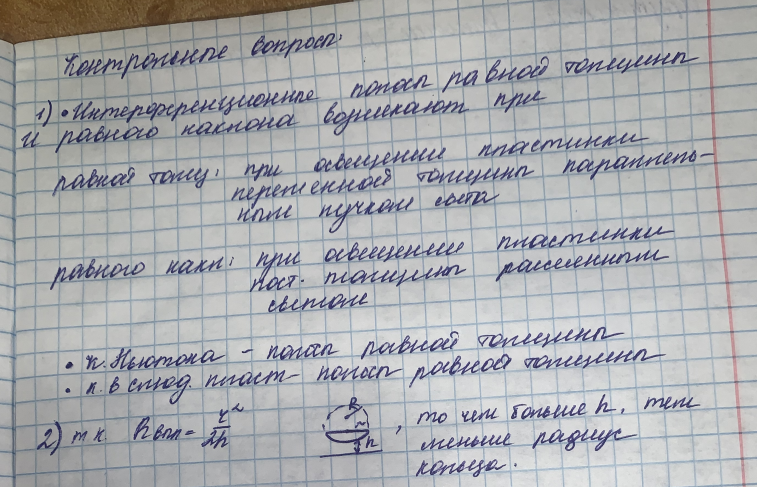 Контрольные вопросы:
1) • Интерференционные полосы равной толщины
и равного наклона возникают при
равной толщ: при освещении пластинки
переменной толщины параллель-
ным пучком света
равного накл: при освещении пластинки
пост. толщины рассеянным
светом
• к. Ньютона - полосы равной толщины
• п. в слюд пласт - полосы равной толщины
2) т к. Rвпл = r²/2h R h , то чем больше h, тем
меньше радиус
кольца.